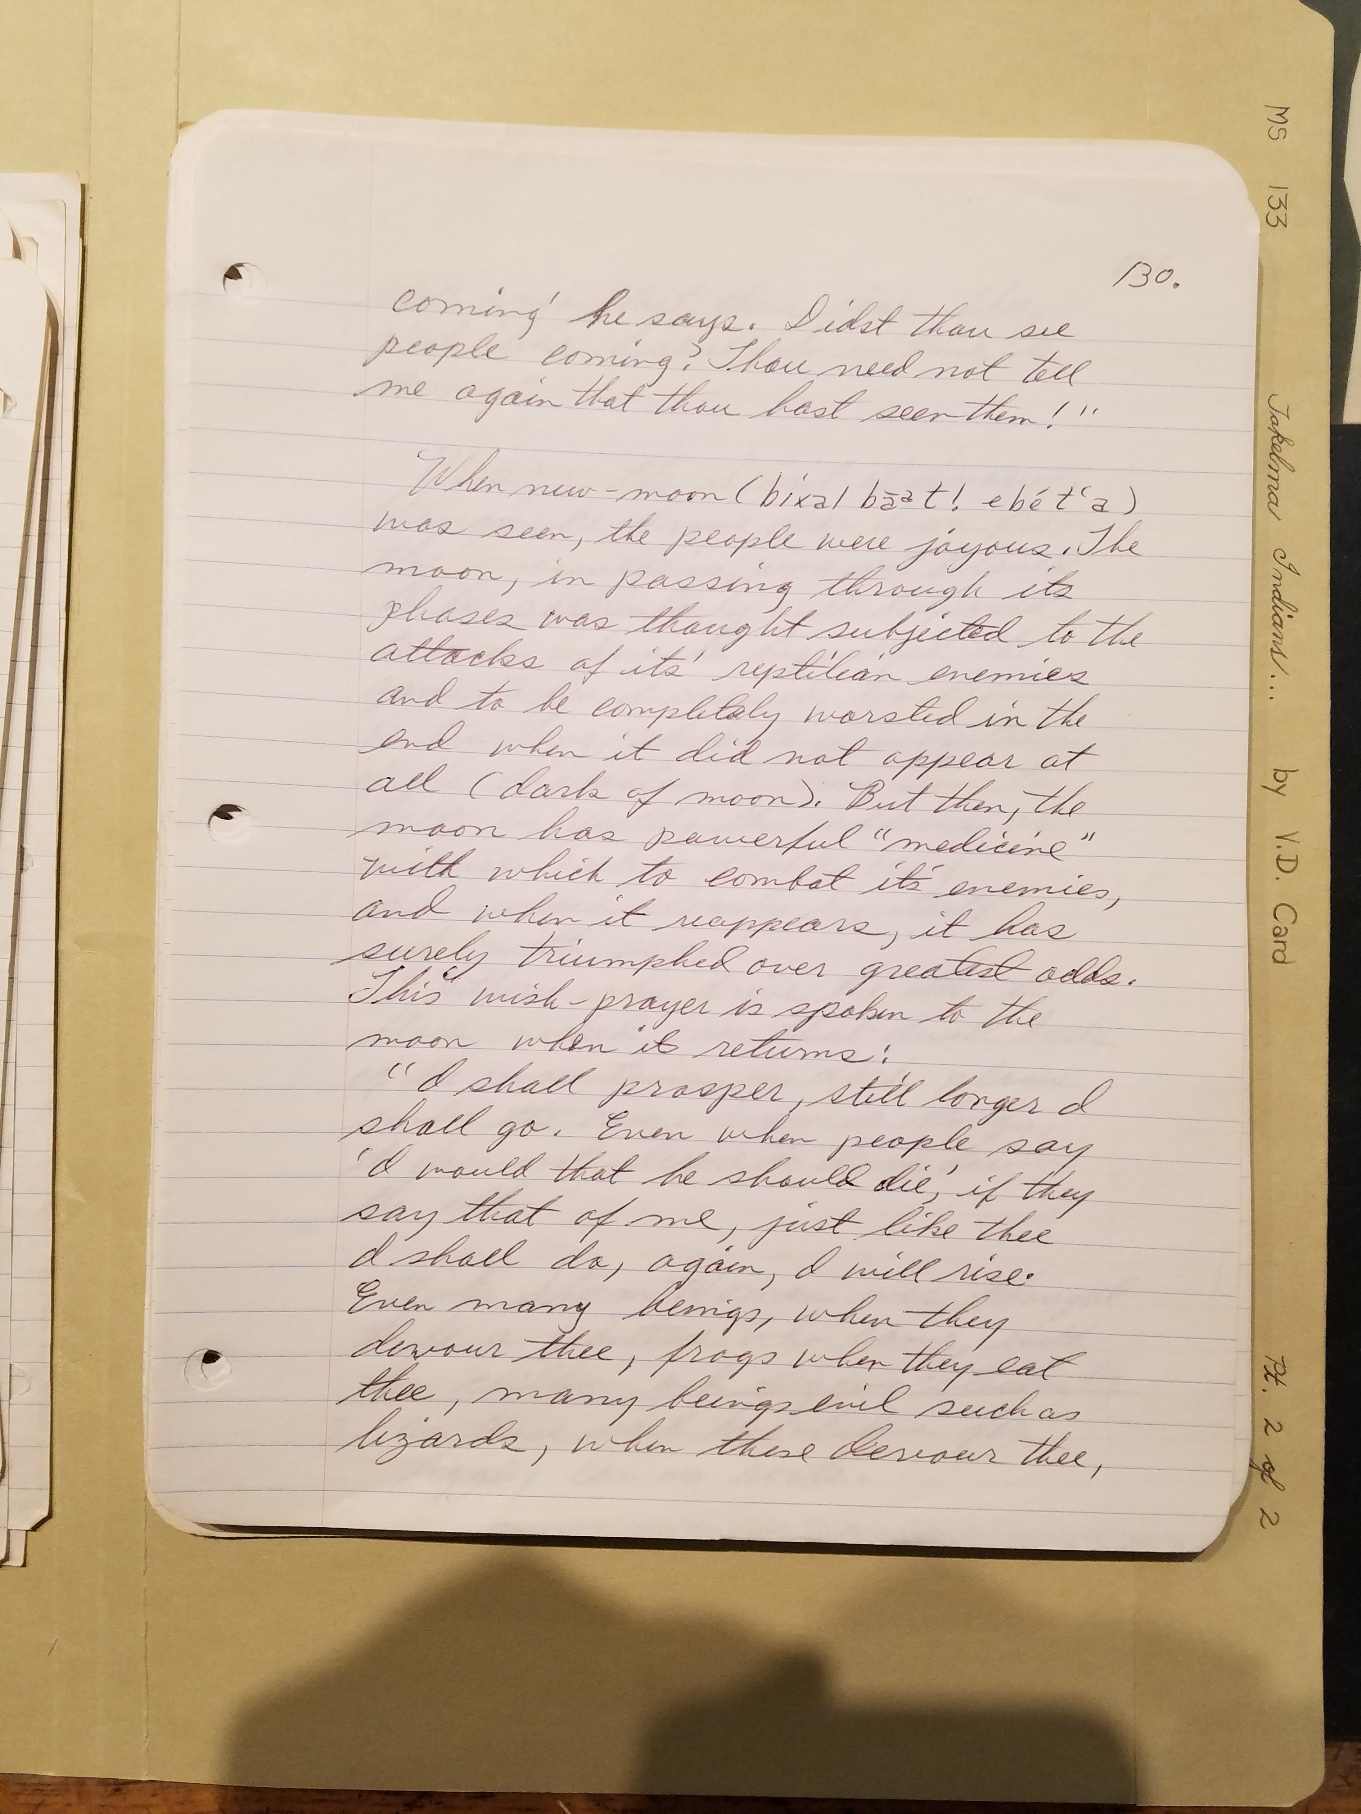 130.
coming' he says. Didst thou see
people coming? Thou need not tell
me again that thou hast seen them!"
When new-moon (bíxal bā̱ᵃt! ebét‘a)
was seen, the people were joyous. The
moon, in passing through its
phases was thought subjected to the
attacks of its' reptilian enemies
and to be completely worsted in the
end when it did not appear at
all (dark of moon). But then, the
moon has powerful "medicine"
with which to combat its' enemies,
and when it reappears, it has
surely triumphed over greatest odds.
This wish-prayer is spoken to the
moon when it returns:
"I shall prosper, still longer I
shall go. Even when people say
'I would that he should die', if they
say that of me, just like thee
I shall do, again, I will rise.
Even many beings, when they
devour thee, frogs when they eat
thee, many beings evil such as
lizards, when these devour thee,
MS 133 Takelma Indians... by V.D. Card Pt. 2 of 2